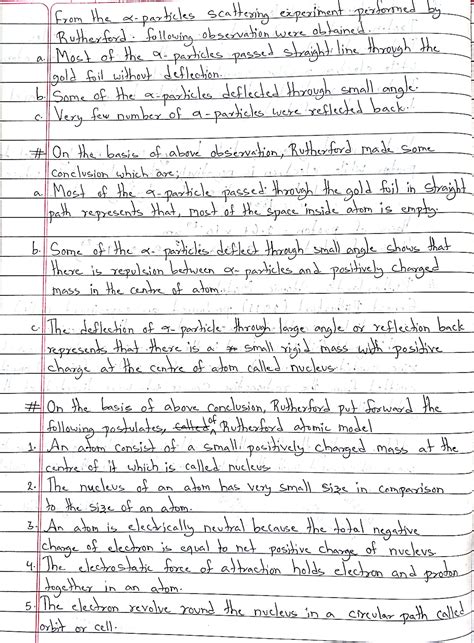 From the α-particles scattering experiment performed by
Rutherford. following observation were obtained.
a. Most of the α-particles passed straight line through the
gold foil without deflection.
b. Some of the α-particles deflected through small angle.
c. Very few number of α-particles were reflected back.
# On the basis of above observation, Rutherford made some
conclusion which are;
a. Most of the α-particle passed through the gold foil in straight
path represents that, most of the space inside atom is empty.
b. Some of the α-particles deflect through small angle shows that
there is repulsion between α-particles and positively charged
mass in the centre of atom.
c. The deflection of α-particle through large angle or reflection back
represents that there is a small rigid mass with positive
charge at the centre of atom called nucleus.
# On the basis of above conclusion, Rutherford put forward the
following postulates, called of Rutherford atomic model
1. An atom consist of a small positively charged mass at the
centre of it which is called nucleus
2. The nucleus of an atom has very small size in comparison
to the size of an atom.
3. An atom is electrically neutral because the total negative
charge of electron is equal to net positive charge of nucleus
4. The electrostatic force of attraction holds electron and proton
together in an atom.
5. The electron revolve round the nucleus in a circular path called
orbit or cell.